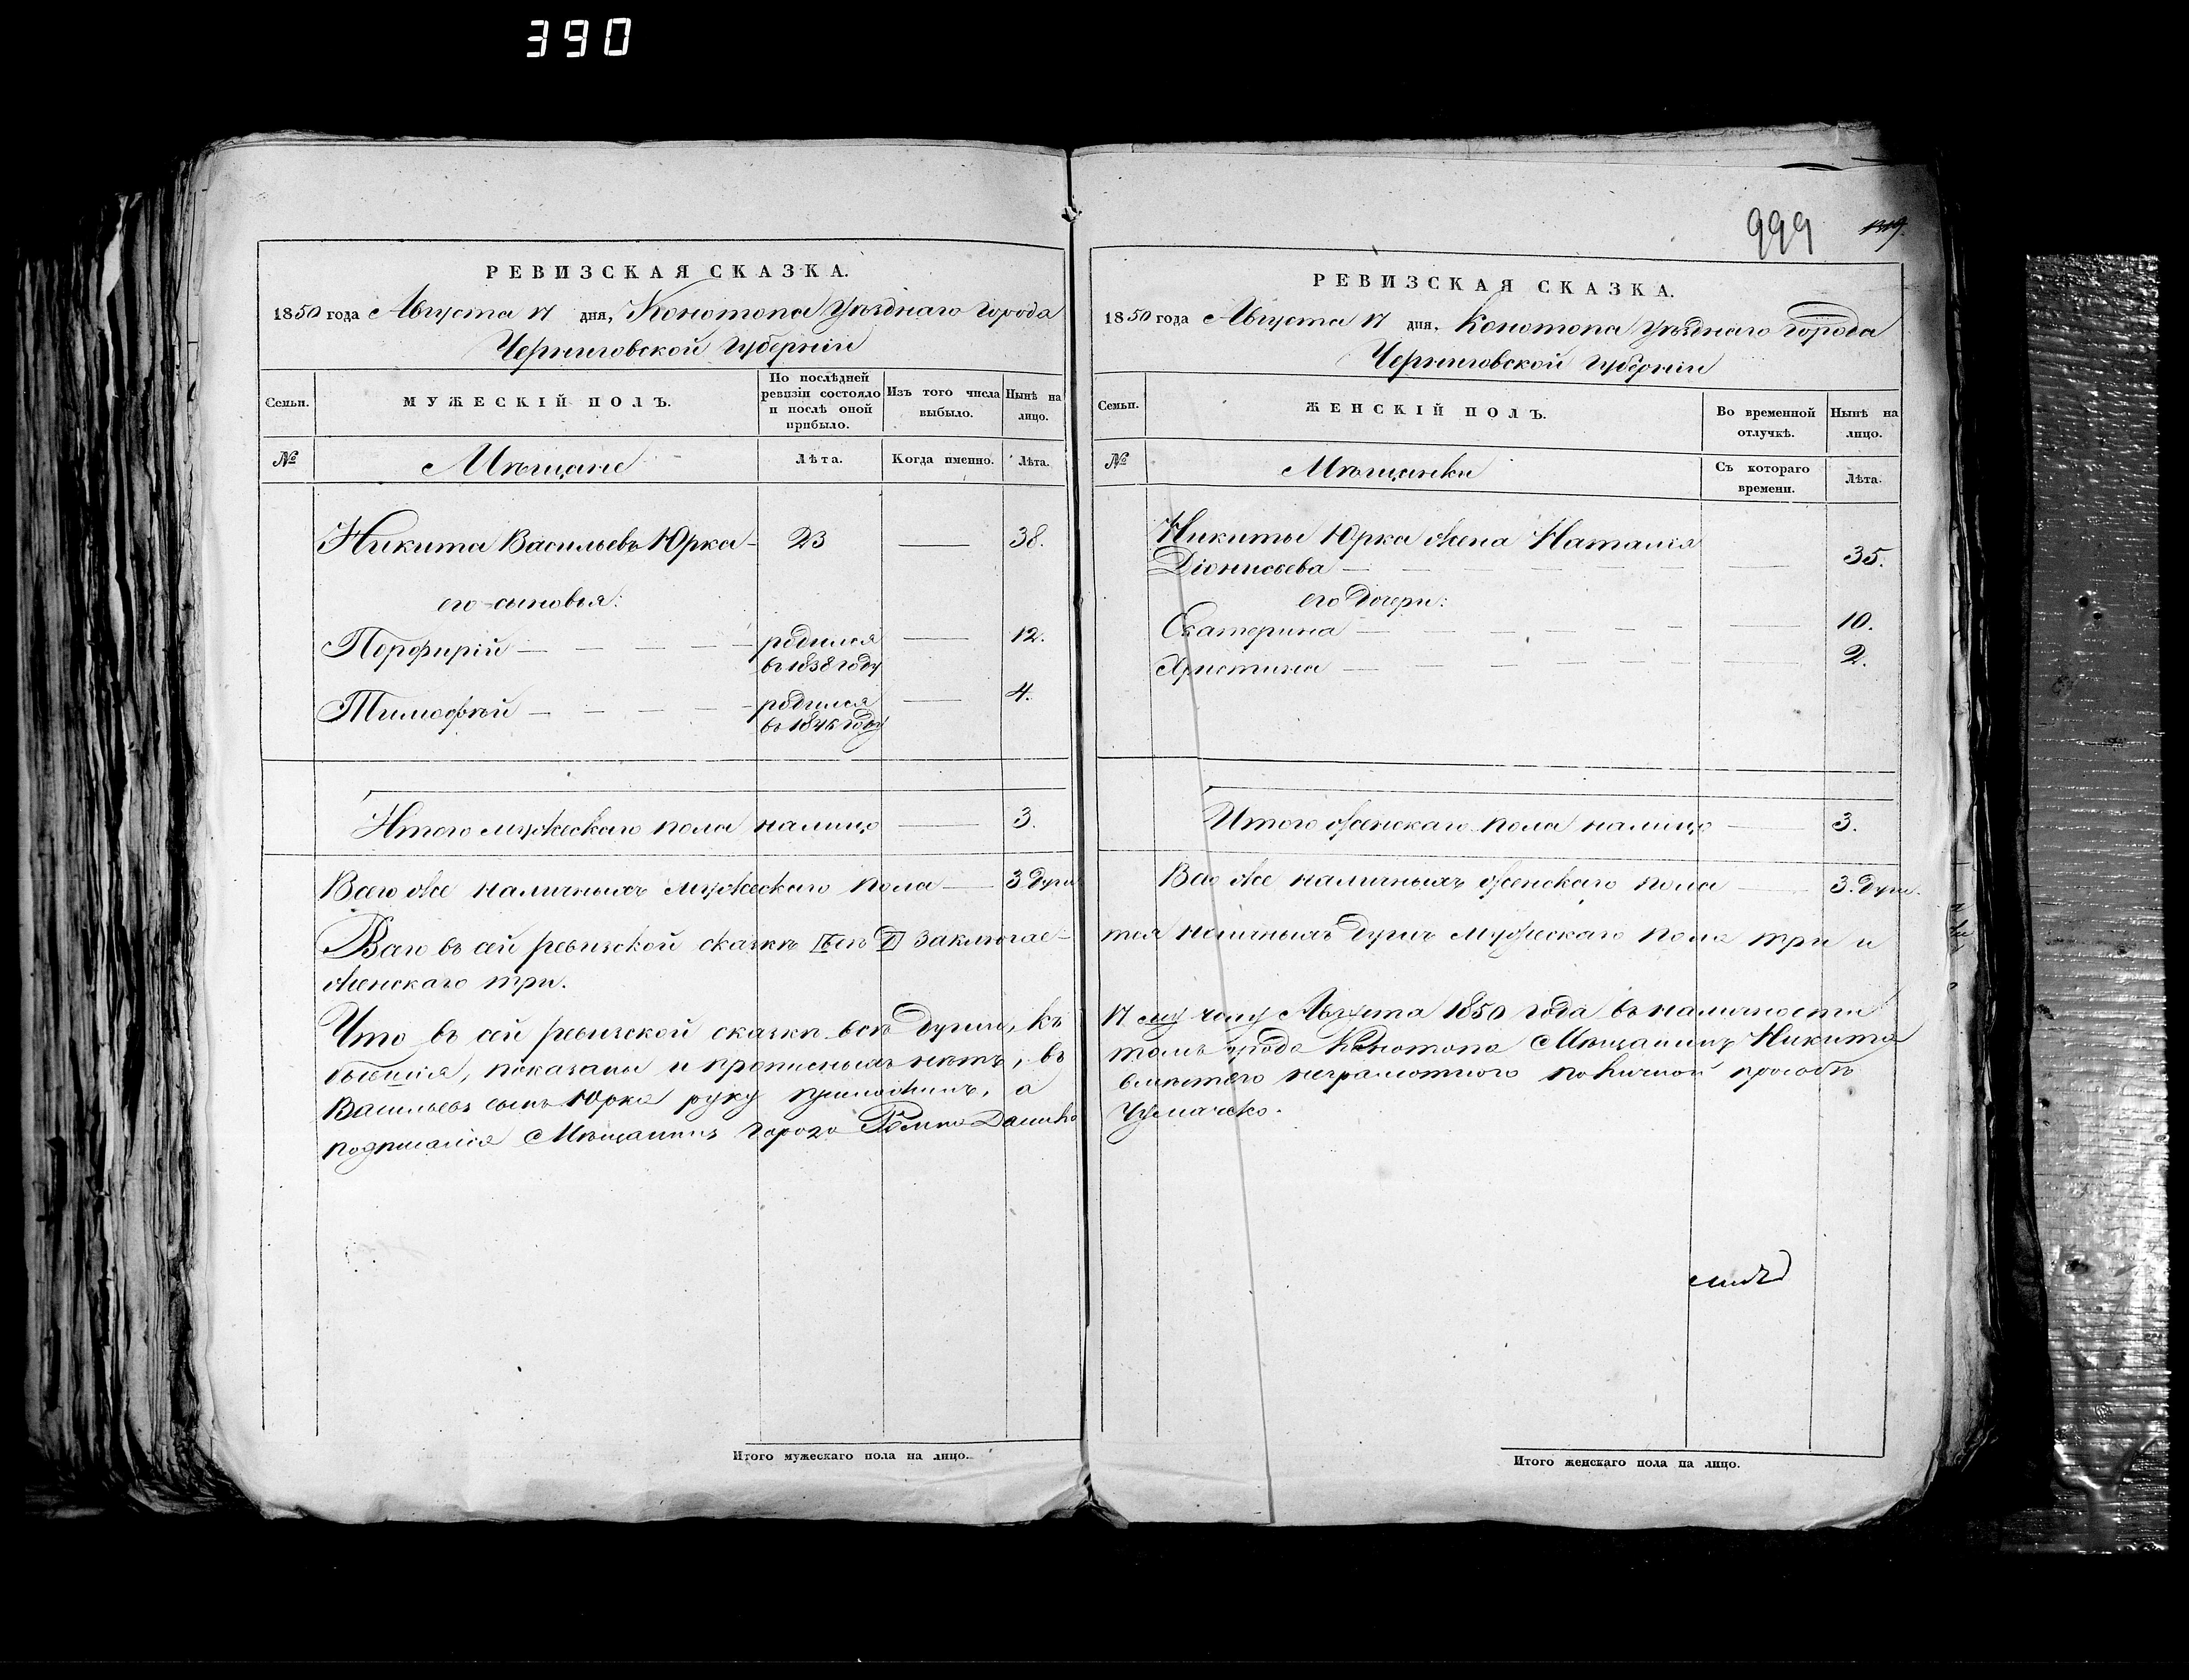 390
999
РЕВИЗСКАЯ СКАЗКА.
1850 года Августа 17 дня, Конотопа Уѣзднаго Города
Черниговской Губерніи
Семьи.
МУЖЕСКІЙ ПОЛЪ.
По послѣдней ревизіи состояло и послѣ оной прибыло.
Изъ того числа выбыло.
Нынѣ на лицо.
№
Мѣщане
Лѣта.
Когда именно.
Лѣта.
Никита Васильевъ Юрка - 23 — 38.
его сыновья:
Порфирій — родился — 12.
въ 1838 году
Тимофѣй — родился — 4.
въ 1846 году
Итого мужескаго пола налицо — 3.
Всего же наличныхъ мужескаго пола — 3 души
Всего въ сей ревизской сказкѣ заключае-
женскаго три.
Что въ сей ревизской сказкѣ всѣ души, къ
показаны и прописныхъ нѣтъ, въ
Васильевъ сынъ Юрка руку приложилъ, а
подписался Мѣщанинъ города
Итого мужескаго пола на лицо.
РЕВИЗСКАЯ СКАЗКА.
1850 года Августа 17 дня, Конотопа Уѣзднаго города
Черниговской Губерніи
Семьи.
ЖЕНСКІЙ ПОЛЪ.
Во временной отлучкѣ.
Нынѣ на лицо.
№
Мѣщанки
Съ котораго времени.
Лѣта.
Никиты Юрка жена Наталія
Діонисьева — 35.
его дочери:
Екатерина — 10.
Христина — 2.
Итого женскаго пола налицо — 3.
Всего же наличныхъ женскаго пола 3. души.
тся наличныхъ душъ мужескаго пола три и
17 му числу Августа 1850 года въ наличности
томъ города Конотопа Мѣщанинъ Никита
вмѣсто его неграмотнаго по личной просьбѣ
Итого женскаго пола на лицо.